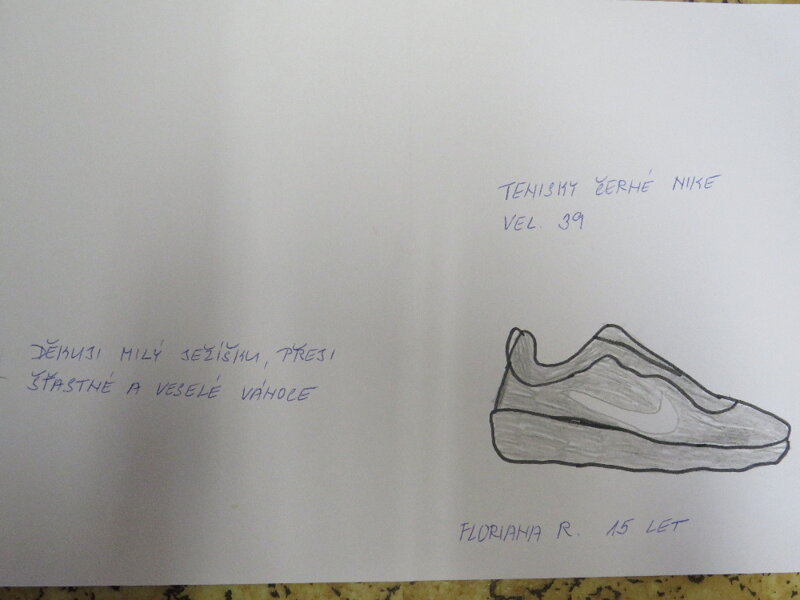 TENISKY ČERNÉ NIKE
VEL. 39
DĚKUJI MILÝ JEŽÍŠKU, PŘEJI
ŠŤASTNÉ A VESELÉ VÁNOCE
FLORIANA R. 15 LET